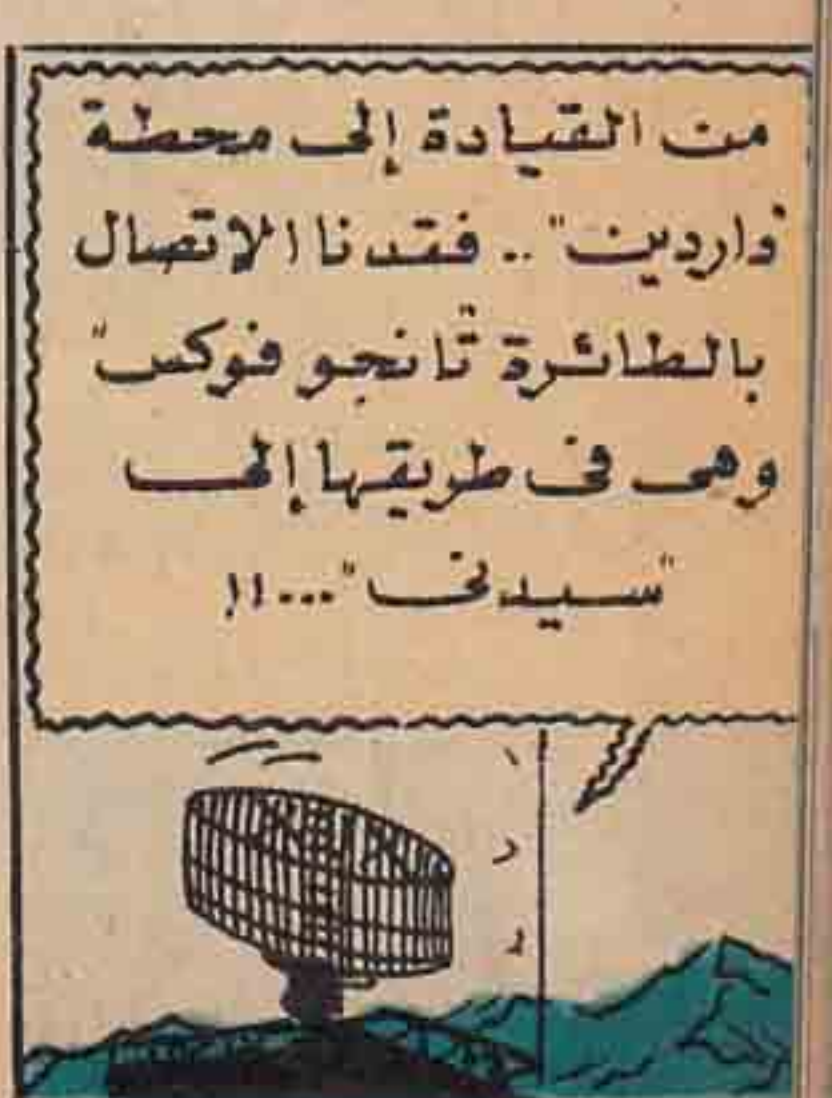 من القيادة إلى محطة
"واردين" .. فقدنا الاتصال
بالطائرة "تانجو فوكس"
وهى فى طريقها إلى
"سيدنى" ...!!